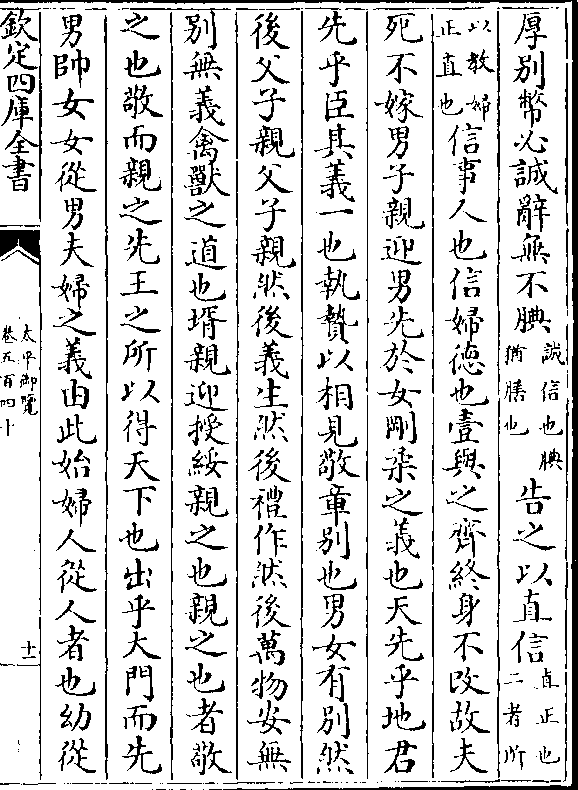 厚别幣必誠辭無不腆誠信也腆猶膳也告之以直信直正也二者所
以教婦正直也信事人也信婦德也壹與之齊終身不改故夫
死不嫁男子親迎男先於女剛柔之義也天先乎地君
先乎臣其義一也執贄以相見敬章别也男女有别然
後父子親父子親然後義生然後禮作然後萬物安無
别無義禽獸之道也壻親迎授綏親之也親之也者敬
之也敬而親之先王之所以得天下也出乎大門而先
男帥女女從男夫婦之義由此始婦人從人者也幼從
欽定四庫全書
太平御覽
卷五百四十
十一